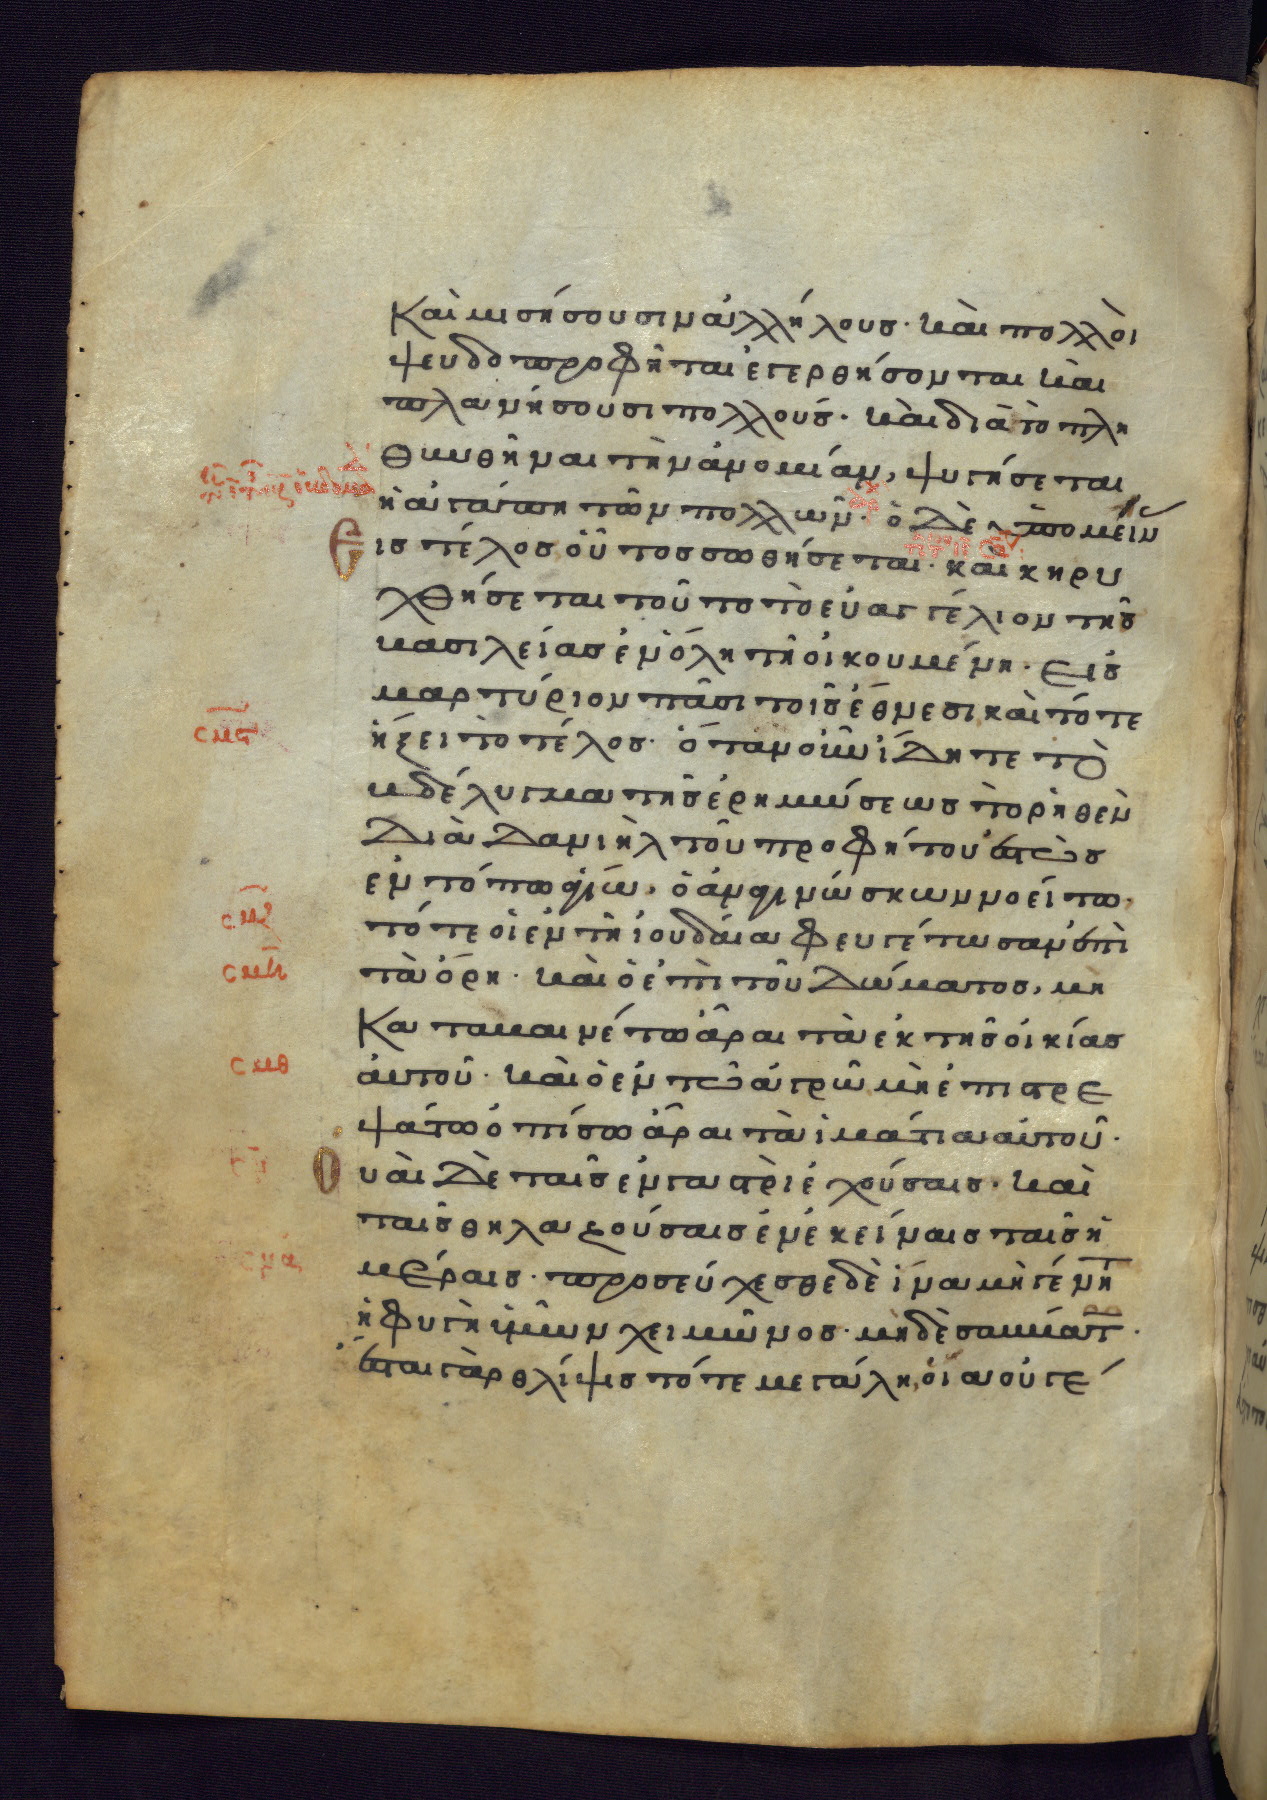 Καὶ μισήσουσιν ἀλλήλους· καὶ πολλοὶ
ψευδοπροφῆται ἐγερθήσονται καὶ
πλανήσουσι πολλούς· καὶ διὰ τὸ πλη
θυνθῆναι τὴν ἀνομίαν, ψυγήσεται
ἡ ἀγάπη τῶν πολλῶν· ὁ δὲ ὑπομείν
Εις τέλος οὗτος σωθήσεται· καὶ κηρυ
χθήσεται τοῦτο τὸ εὐαγγέλιον τῆς
βασιλείας ἐν ὅλη τῆ οἰκουμένη· εἰς
μαρτύριον πᾶσι τοῖς ἔθνεσι καὶ τότε
ἥξει τὸ τέλος· ὅταν οὖν ἴδητε τὸ
βδέλυγμα τῆς ἐρημώσεως τὸ ῥηθὲν
διὰ Δανιὴλ τοῦ προφήτου ἑστὼς
ἐν τόπω ἁγίω, ὁ ἀναγινώσκων νοείτω·
τότε οἱ ἐν τῆ ἰουδαία φευγέτωσαν ἐπὶ
τὰ ὄρη· καὶ ὁ ἐπὶ τοῦ δώματος, μὴ
Καταβαινέτω ἆραι τὰ ἐκ τῆς οἰκίας
αὐτοῦ· καὶ ὁ ἐν τῶ ἀγρῶ μὴ ἐπιστρε
ψάτω ὀπίσω ἆραι τὰ ἱμάτια αὐτοῦ·
Ουαὶ δὲ ταῖς ἐν γαστρὶ ἐχούσαις· καὶ
ταῖς θηλαζούσαις ἐν ἐκείναις ταῖς ἡ
μέραις· προσεύχεσθε δὲ ἵνα μὴ γένητ
ἡ φυγὴ ὑμῶν χειμῶνος· μηδὲ σαββάτ·
ἔσται γὰρ θλίψις τότε μεγάλη, οἵα οὐ γέ
σμς
σμζ
σμη
σμθ